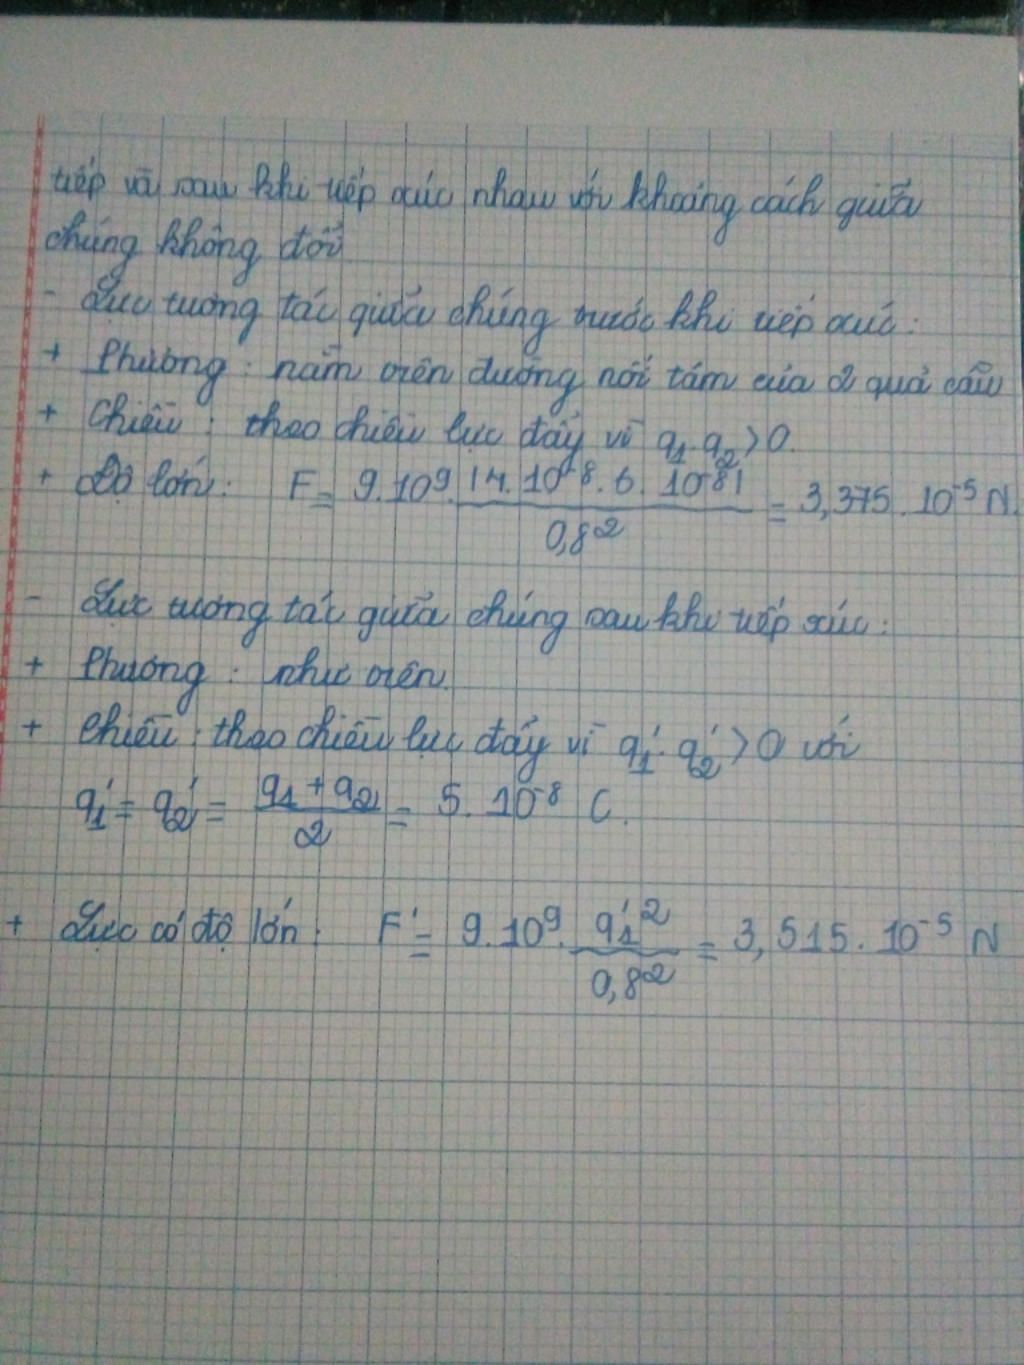 tiếp và sau khi tiếp xúc nhau với khoảng cách giữa
chúng không đổi
- Lực tương tác giữa chúng trước khi tiếp xúc:
+ Phương: nằm trên đường nối tâm của 2 quả cầu
+ Chiều: theo chiều lực đẩy vì q₁.q₂>0.
+ Độ lớn: F = 9.10⁹.|4.10⁻⁸.6.10⁻⁸|/0,8² = 3,375.10⁻⁵ N.
- Lực tương tác giữa chúng sau khi tiếp xúc:
+ Phương: như trên.
+ Chiều: theo chiều lực đẩy vì q₁'.q₂'>0 với
q₁' = q₂' = (q₁+q₂)/2 = 5.10⁻⁸ C.
+ Lực có độ lớn: F' = 9.10⁹.q₁'²/0,8² = 3,515.10⁻⁵ N